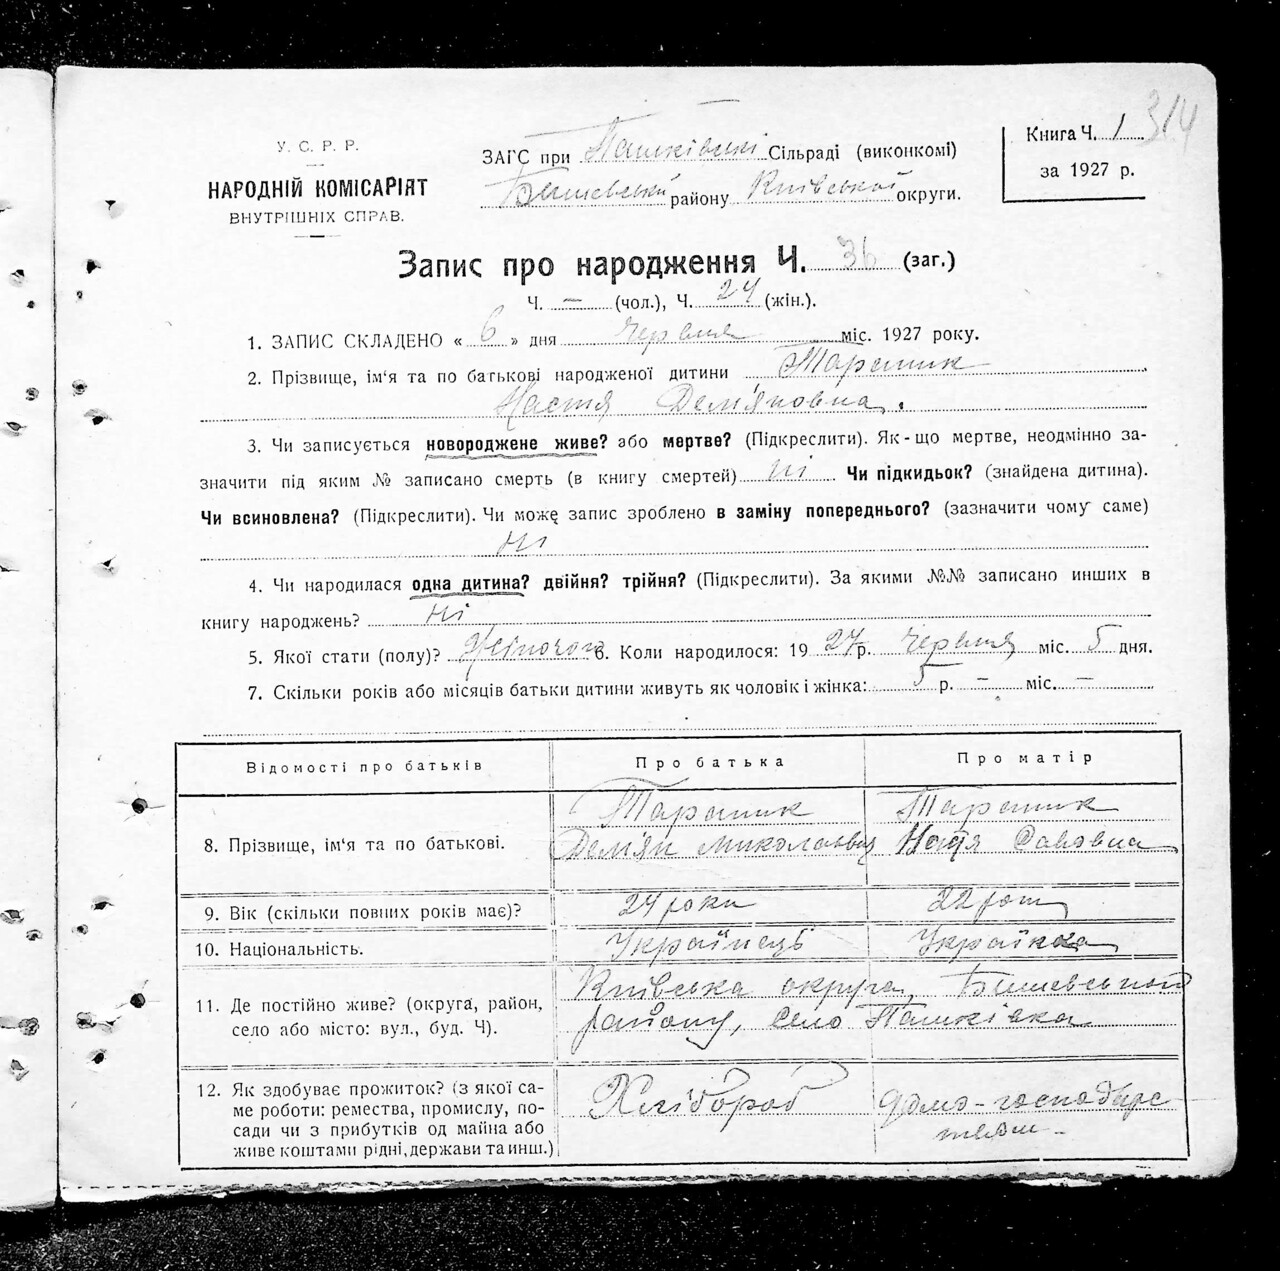 314
У. С. Р. Р.
НАРОДНІЙ КОМІСАРІЯТ
ВНУТРІШНІХ СПРАВ.
ЗАГС при Пашківські Сільраді (виконкомі)
Бишевський району Київської округи.
Книга Ч. 1
за 1927 р.
Запис про народження Ч. 36 (заг.)
Ч. — (чол.), Ч. 24 (жін.).
1. ЗАПИС СКЛАДЕНО « 6 » дня червня міс. 1927 року.
2. Прізвище, ім'я та по батькові народженої дитини
Настя Демяновна.
3. Чи записується новороджене живе? або мертве? (Підкреслити). Як-що мертве, неодмінно за-
значити під яким № записано смерть (в книгу смертей) ні Чи підкидьок? (знайдена дитина).
Чи всиновлена? (Підкреслити). Чи може запис зроблено в заміну попереднього? (зазначити чому саме)
ні
4. Чи народилася одна дитина? двійня? трійня? (Підкреслити). За якими №№ записано инших в
книгу народжень? ні
5. Якої стати (полу)? Жіночої 6. Коли народилося: 1927 р. червня міс. 5 дня.
7. Скільки років або місяців батьки дитини живуть як чоловік і жінка: 5 р. — міс. —
Відомості про батьків
Про батька
Про матір
8. Прізвище, ім'я та по батькові.
Демян Миколаєвич
Настя Савовна
9. Вік (скільки повних років має)?
24 роки
22 роки
10. Національність.
Українець
Українка
11. Де постійно живе? (округа, район,
село або місто: вул., буд. Ч).
Київська округа, Бишевського
району, село Пашківка
12. Як здобуває прожиток? (з якої са-
ме роботи: ремества, промислу, по-
сади чи з прибутків од майна або
живе коштами рідні, держави та инш.)
Хлібороб
Домо-господарс